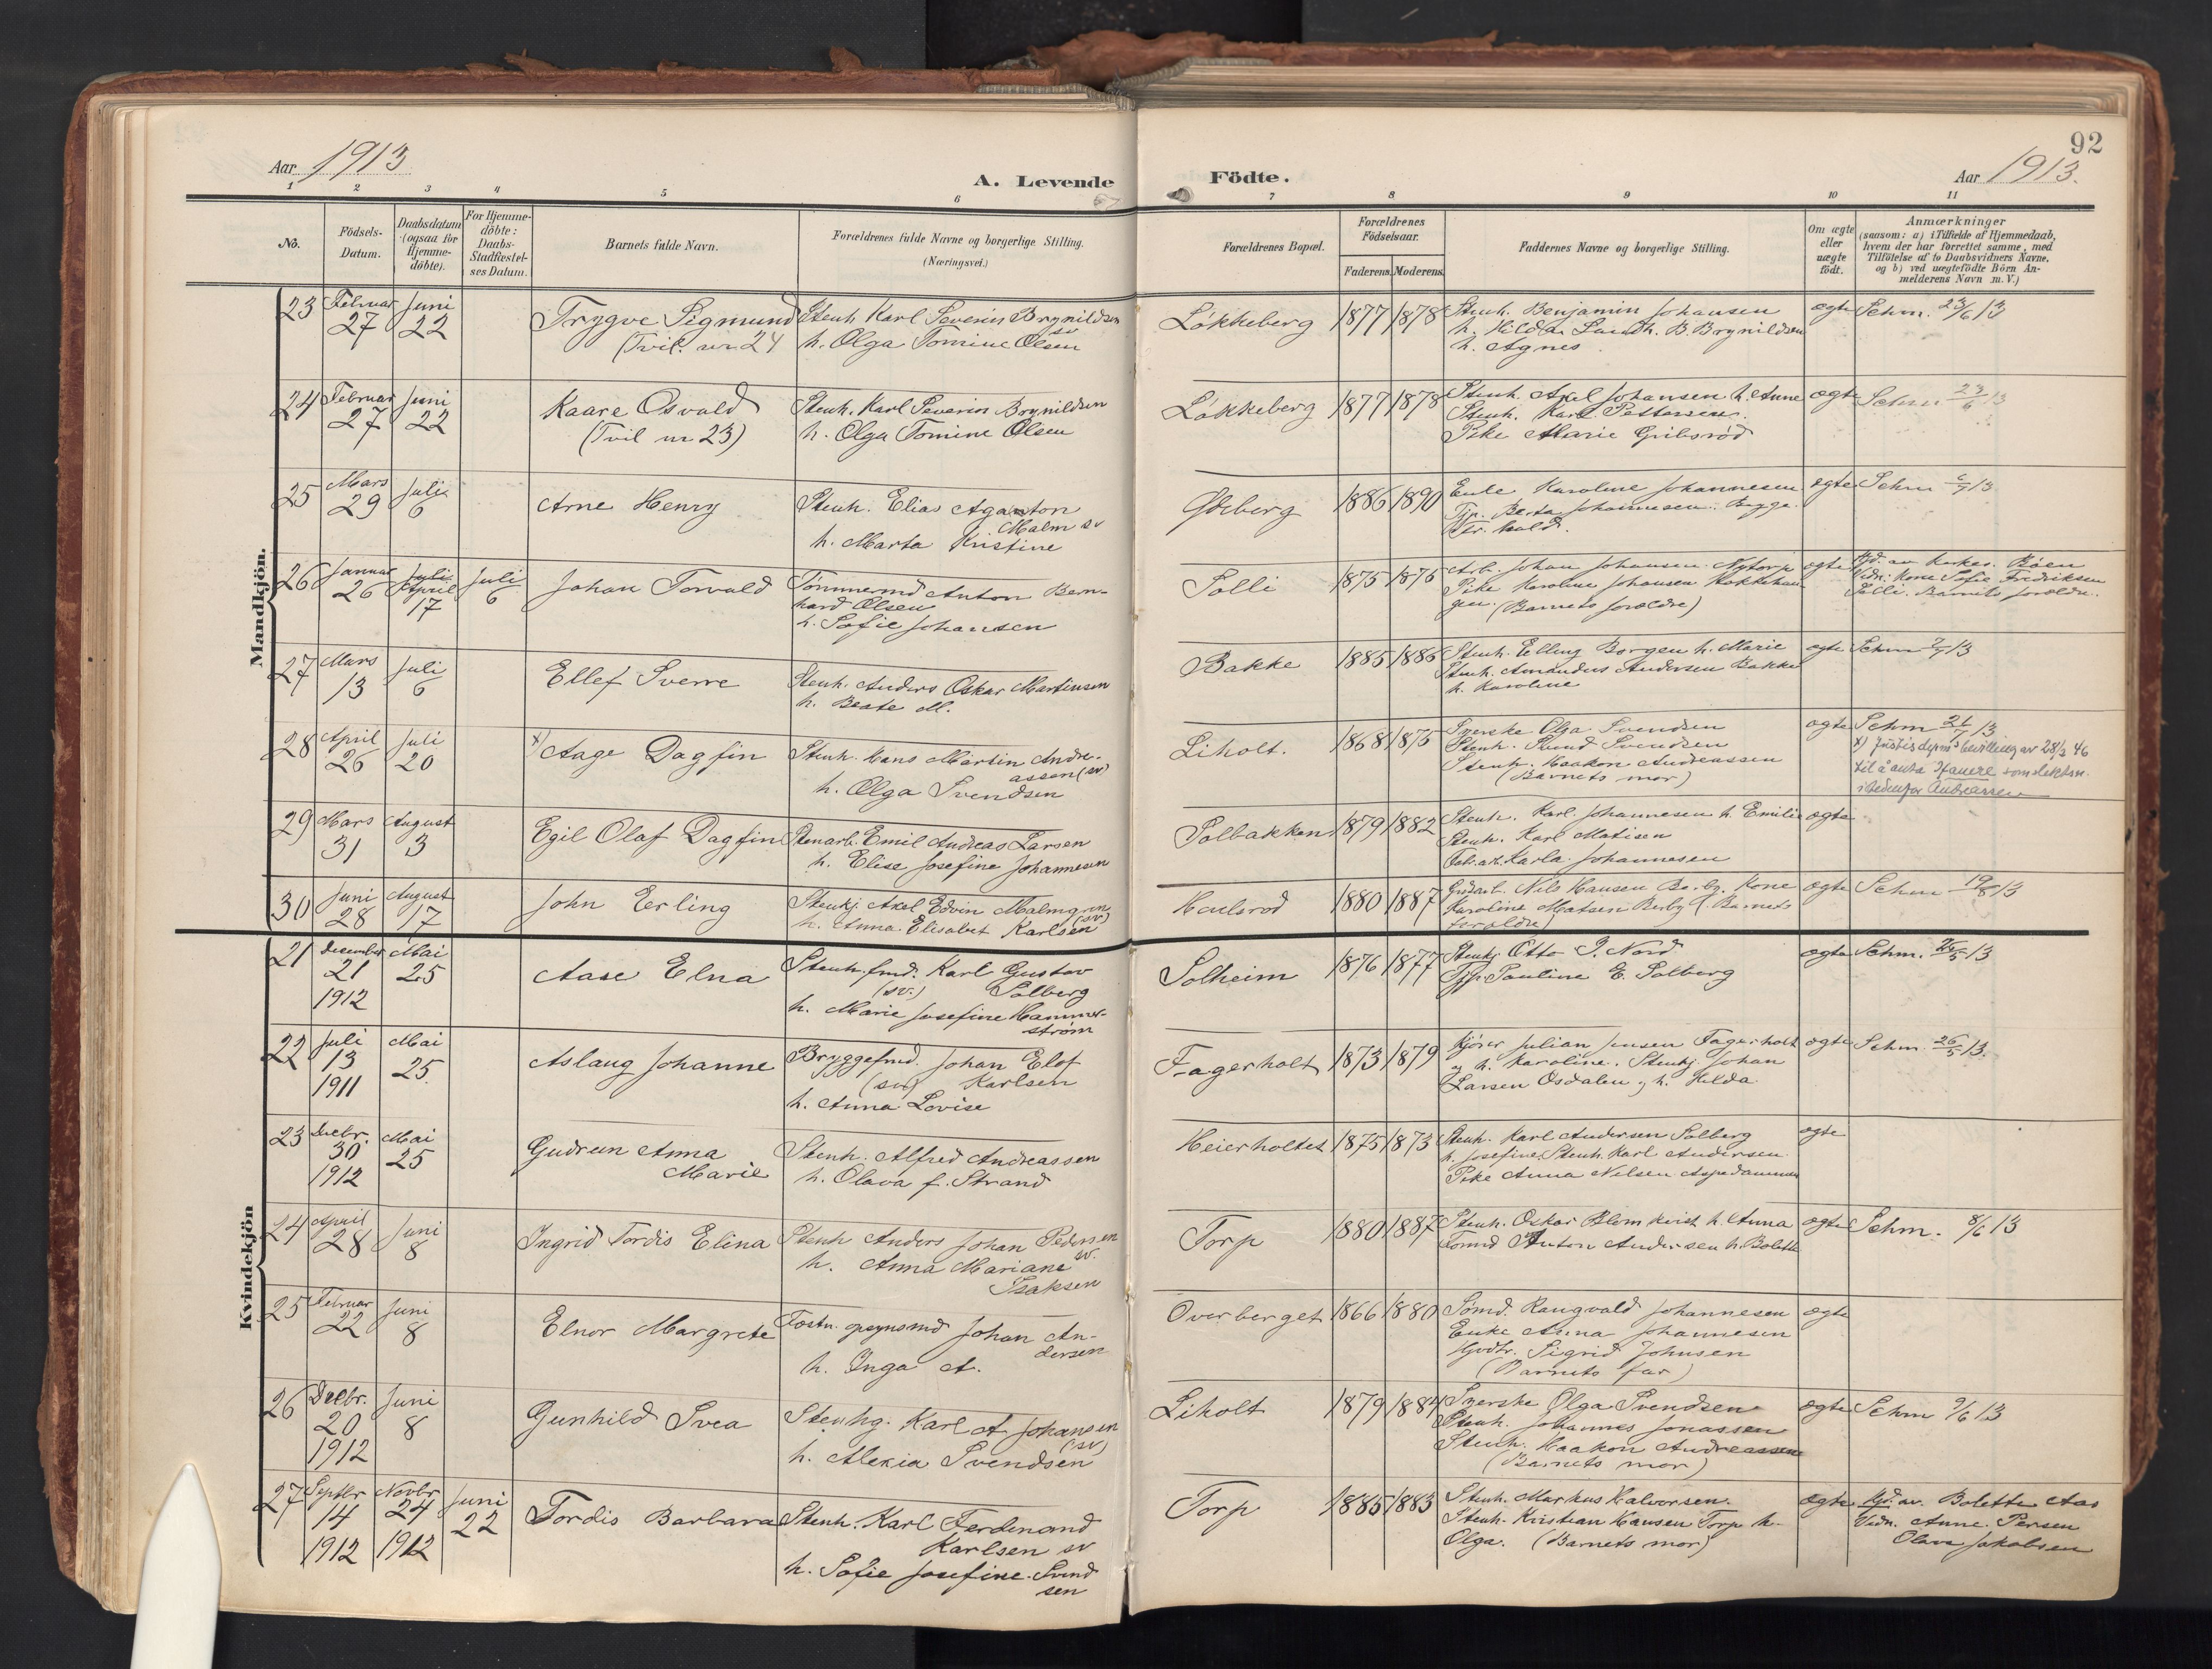 92
Aar 1913
A. Levende Födte.
Aar 1913.
1 2 3 4 5 6 7 8 9 10 11
No.
Födsels-
Datum.
Daabsdatum
(ogsaa for
Hjemme-
döbte).
For Hjemme-
döbte:
Daabs-
Stadfæstel-
ses Datum.
Barnets fulde Navn.
Forældrenes fulde Navne og borgerlige Stilling.
(Næringsvei.)
Forældrenes Bopæl.
Forældrenes
Födselsaar.
Faderens. Moderens.
Faddernes Navne og borgerlige Stilling.
Om ægte
eller
uægte
födt.
Anmærkninger
(saasom: a) i Tilfælde af Hjemmedaab,
hvem der har forrettet samme, med
Tilföielse af to Daabsvidners Navne,
og b) ved uægtefödte Börn An-
melderens Navn m. V.)
Mandkjön.
23 Februar 27 Juni 22
Trygve Sigmund
(Tvil. nr. 24
Stenh. Karl Severin Brynildsen
sv
h. Olga Tomine Olsen
Løkkeberg 1877 1878
Stenh. Benjamin Johansen
h. Hilda. Landh. B. Brynildsen
h. Agnes
ægte Schm. 23/6 13
24 Februar 27 Juni 22
Kaare Osvald
(Tvil nr 23)
Stenh. Karl Severin Brynildsen
h. Olga Tomine Olsen
Løkkeberg 1877 1878
Stenh. Axel Johansen h. Anne
Stenh. Karl Pettersen.
Pike Marie Gribsrød
ægte Schm 23/6 13
25 Mars 29 Juli 6
Arne Henry
Stenh. Elias Agaston
Malm sv
h. Marta Kristine
Ødeberg 1886 1890
Enke Karoline Johannesen
Tjp. Berta Johannesen. Bygge
ægte Schm 13
26 Januar 26 Juli April 17 Juli 6
Johan Torvald
Tømmermd Anton Bern-
hard Olsen
h. Sofie Johansen
Solli 1875 1876
Arb. Johan Johansen Nytorp
Pike Karoline Johansen
gen. (Barnets forældre)
ægte Hjd. av Kirkes. Bøen
Vidn: Kone Sofie Fredriksen
Solli. Barnets forældre.
27 Mars 13 Juli 6
Ellef Sverre
Stenh. Anders Oskar Martinsen
h. Beate M.
Bakke 1885 1886
Stenh. Elling Borgen h. Marie
Stenh. Amandus Andersen Bakke
h. Karoline
ægte Schm 7/7 13
28 April 26 Juli 20
x) Aage Dagfin
Stenh. Hans Martin Andre-
assen (sv)
h. Olga Svendsen
Liholt. 1868 1875
Syerske Olga Svendsen
Stenh. Svendsen
Stenh. Haakon Andreassen
(Barnets mor)
ægte Schm 21/7 13
x) Justisdepm's bevilling av 28/2 46
til å anta Hauere som slektsn.
istedenfor Andreassen
29 Mars 31 August 3
Egil Olaf Dagfin
Stenarb. Emil Andreas Larsen
h. Elise Josefine Johannesen
Solbakken 1879 1882
Stenh. Karl Johannesen h. Emilie
Stenh. Karl Matisen
Karla Johannesen
ægte
30 Juni 28 August 17
John Erling
Stenhj Axel Edvin Malmgren
(sv)
h. Anna Elisabet Karlsen
1880 1887
Gndarb. Nils Hansen Berby. Kone
Karoline Matsen Berby (Barnets
forældre)
ægte Schm 19/8 13
Kvindekjön
21 December 21 1912 Mai 25
Aase Elna
Stenh.fmd. Karl Gustav
(sv.) Solberg
h. Marie Josefine Hammer-
strøm
Solheim 1876 1877
Stenhj Otto J. Nord
Tjp. Pauline E. Solberg
ægte Schm. 26/5 13
22 Juli 13 1911 Mai 25.
Aslaug Johanne
Bryggefmd. Johan Elof
(sv) Karlsen
h. Anna Lovise
Fagerholt 1873 1879
Kjører Julian Jensen Fagerholt
og h. Karoline. Stenhj Johan
Larsen Osdalen, h. Hilda.
ægte Schm. 26/5 13.
23 Decbr. 30 1912 Mai 25
Gudrun Anna
Marie
Stenh. Alfred Andreassen
h. Olava f. Strand
Heierholtet 1875 1873
Stenh. Karl Andersen Solberg
h. Josefine. Stenh. Karl Andersen
Pike Anna Nilsen Aspedammen
ægte
24 April 28 Juni 8
Ingrid Tordis Elina
Stenh Anders Johan Pedersen
sv.
h. Anna Mariane
Isaksen
Torp 1880 1887
Stenh. Oskar Blomkvist h. Anna
Tømmd Anton Andersen h. Bolette
ægte Schm. 8/6 13
25 Februar 22 Juni 8
Elnor Margrete
Tostn. opsynsmd Johan An-
dersen
h. Inga A.
Overberget 1866 1880
Sømd. Rangvald Johannesen
Enke Anna Johannesen
Sigrid Johnsen
(Barnets far)
ægte
26 Decbr. 20 1912 Juni 8
Gunhild Svea
Stenhg. Karl A Johansen
(sv)
h. Alexia Svendsen
Liholt 1879 1884
Syerske Olga Svendsen
Stenh. Johannes Jonassen
Stenh. Haakon Andreassen
(Barnets mor)
ægte Schm 9/6 13
27 Septbr 14 1912 Novbr 24 1912 Juni 22
Tordis Barbara
Stenh. Karl Ferdinand
Karlsen sv
h. Sofie Josefine Svend
sen
Torp 1885 1883
Stenh. Markus Halvorsen.
Stenh. Kristian Hansen Torp h.
Olga. (Barnets mor)
ægte Hjd. av. Bolette Aas
Vidn. Anne Persen
Olava Jakobsen